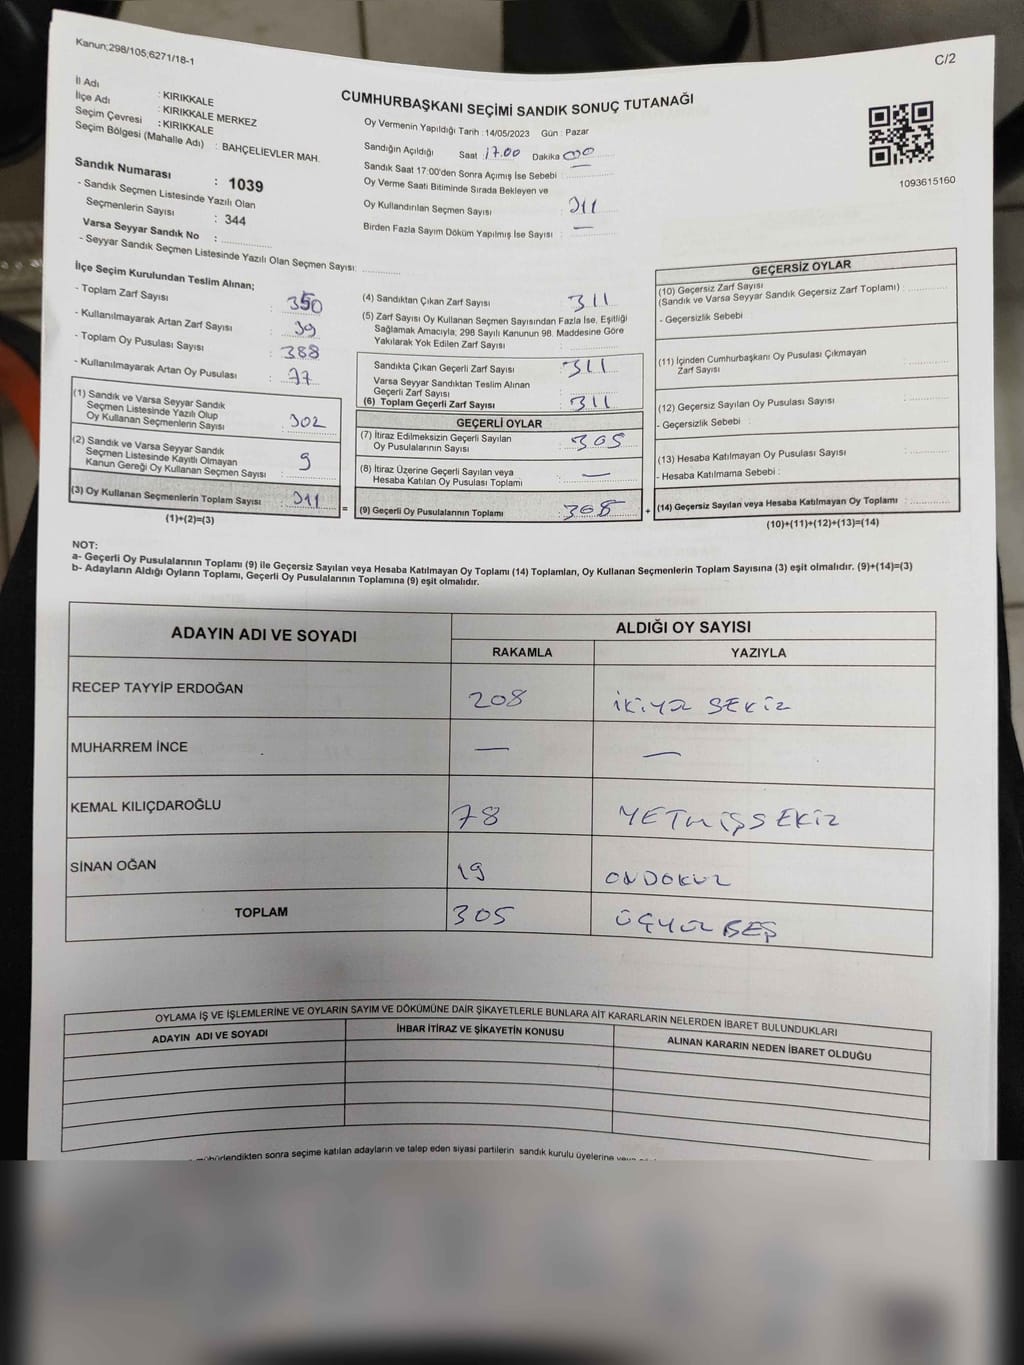 Kanun;298/105;6271/18-1
C/2
İl Adı : KIRIKKALE
İlçe Adı : KIRIKKALE MERKEZ
Seçim Çevresi : KIRIKKALE
Seçim Bölgesi (Mahalle Adı) : BAHÇELİEVLER MAH.
Sandık Numarası : 1039
- Sandık Seçmen Listesinde Yazılı Olan
Seçmenlerin Sayısı : 344
Varsa Seyyar Sandık No :
- Seyyar Sandık Seçmen Listesinde Yazılı Olan Seçmen Sayısı:
CUMHURBAŞKANI SEÇİMİ SANDIK SONUÇ TUTANAĞI
Oy Vermenin Yapıldığı Tarih :14/05/2023 Gün : Pazar
Sandığın Açıldığı Saat 17.00 Dakika 00
Sandık Saat 17:00'den Sonra Açımış İse Sebebi :
Oy Verme Saati Bitiminde Sırada Bekleyen ve
Oy Kullandırılan Seçmen Sayısı : 311
Birden Fazla Sayım Döküm Yapılmış İse Sayısı : —
1093615160
İlçe Seçim Kurulundan Teslim Alınan;
- Toplam Zarf Sayısı : 350
- Kullanılmayarak Artan Zarf Sayısı : 39
- Toplam Oy Pusulası Sayısı : 388
- Kullanılmayarak Artan Oy Pusulası : 77
(1) Sandık ve Varsa Seyyar Sandık
Seçmen Listesinde Yazılı Olup
Oy Kullanan Seçmenlerin Sayısı : 302
(2) Sandık ve Varsa Seyyar Sandık
Seçmen Listesinde Kayıtlı Olmayan
Kanun Gereği Oy Kullanan Seçmen Sayısı : 9
(3) Oy Kullanan Seçmenlerin Toplam Sayısı : 311
(1)+(2)=(3)
=
(4) Sandıktan Çıkan Zarf Sayısı : 311
(5) Zarf Sayısı Oy Kullanan Seçmen Sayısından Fazla İse, Eşitliği
Sağlamak Amacıyla; 298 Sayılı Kanunun 98. Maddesine Göre
Yakılarak Yok Edilen Zarf Sayısı :
Sandıkta Çıkan Geçerli Zarf Sayısı : 311
Varsa Seyyar Sandıktan Teslim Alınan
Geçerli Zarf Sayısı :
(6) Toplam Geçerli Zarf Sayısı : 311
GEÇERLİ OYLAR
(7) İtiraz Edilmeksizin Geçerli Sayılan
Oy Pusulalarının Sayısı : 305
(8) İtiraz Üzerine Geçerli Sayılan veya
Hesaba Katılan Oy Pusulası Toplamı : —
(9) Geçerli Oy Pusulalarının Toplamı :
+
GEÇERSİZ OYLAR
(10) Geçersiz Zarf Sayısı
(Sandık ve Varsa Seyyar Sandık Geçersiz Zarf Toplamı) :
- Geçersizlik Sebebi :
(11) İçinden Cumhurbaşkanı Oy Pusulası Çıkmayan
Zarf Sayısı :
(12) Geçersiz Sayılan Oy Pusulası Sayısı :
- Geçersizlik Sebebi :
(13) Hesaba Katılmayan Oy Pusulası Sayısı :
- Hesaba Katılmama Sebebi :
(14) Geçersiz Sayılan veya Hesaba Katılmayan Oy Toplamı :
(10)+(11)+(12)+(13)=(14)
NOT:
a- Geçerli Oy Pusulalarının Toplamı (9) ile Geçersiz Sayılan veya Hesaba Katılmayan Oy Toplamı (14) Toplamları, Oy Kullanan Seçmenlerin Toplam Sayısına (3) eşit olmalıdır. (9)+(14)=(3)
b- Adayların Aldığı Oyların Toplamı, Geçerli Oy Pusulalarının Toplamına (9) eşit olmalıdır.
ADAYIN ADI VE SOYADI
ALDIĞI OY SAYISI
RAKAMLA YAZIYLA
RECEP TAYYİP ERDOĞAN 208 İKİYÜZ SEKİZ
MUHARREM İNCE — —
KEMAL KILIÇDAROĞLU 78 YETMİŞSEKİZ
SİNAN OĞAN 19 ONDOKUZ
TOPLAM 305 ÜÇYÜZ BEŞ
OYLAMA İŞ VE İŞLEMLERİNE VE OYLARIN SAYIM VE DÖKÜMÜNE DAİR ŞİKAYETLERLE BUNLARA AİT KARARLARIN NELERDEN İBARET BULUNDUKLARI
ADAYIN ADI VE SOYADI İHBAR İTİRAZ VE ŞİKAYETİN KONUSU ALINAN KARARIN NEDEN İBARET OLDUĞU
sonra seçime katılan adayların ve talep eden siyasi partilerin sandık kurulu üyelerine